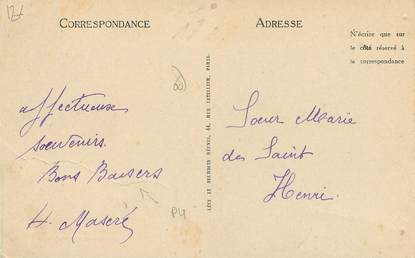 12f
CORRESPONDANCE
ADRESSE
N'écrire que sur
le côté réservé à
la correspondance
affectueux
souvenirs.
Bons Baisers
H. Mascré
P4
LÉVY ET NEURDEIN RÉUNIS, 44, RUE LETELLIER, PARIS.
Sœur Marie
des Saint
Henri.